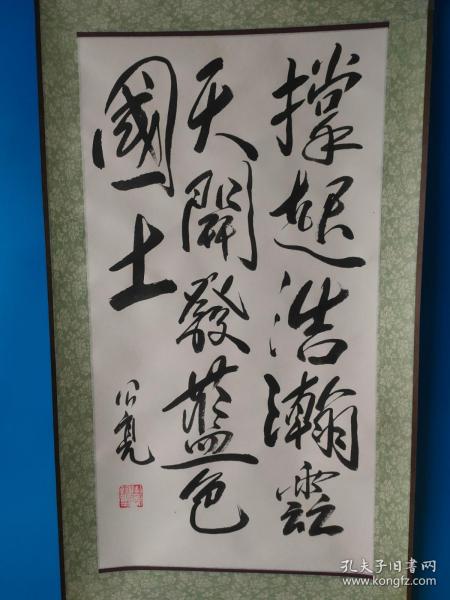 撑起浩瀚雲
天開發藍色
國土
孔夫子旧书网
www.kongfz.com